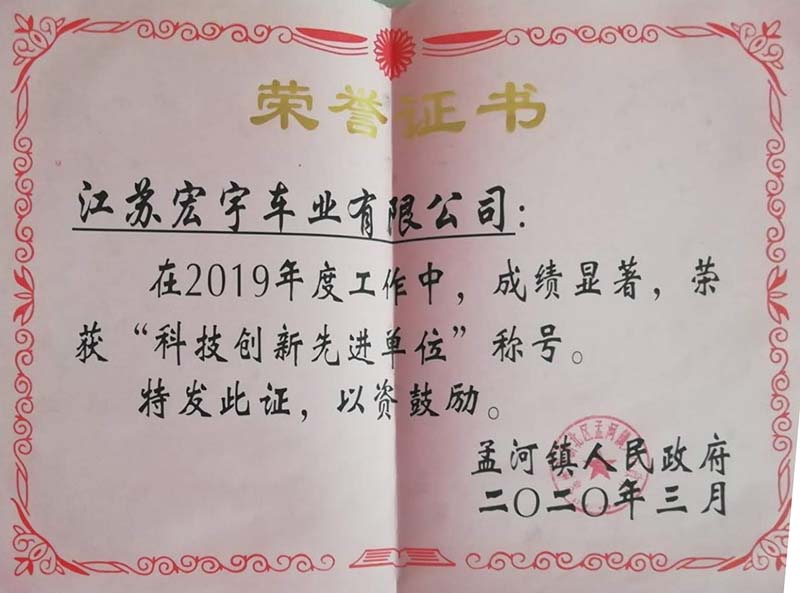 荣誉证书
江苏宏宇车业有限公司：
在2019年度工作中，成绩显著，荣
获“科技创新先进单位”称号。
特发此证，以资鼓励。
孟河镇人民政府
二〇二〇年三月